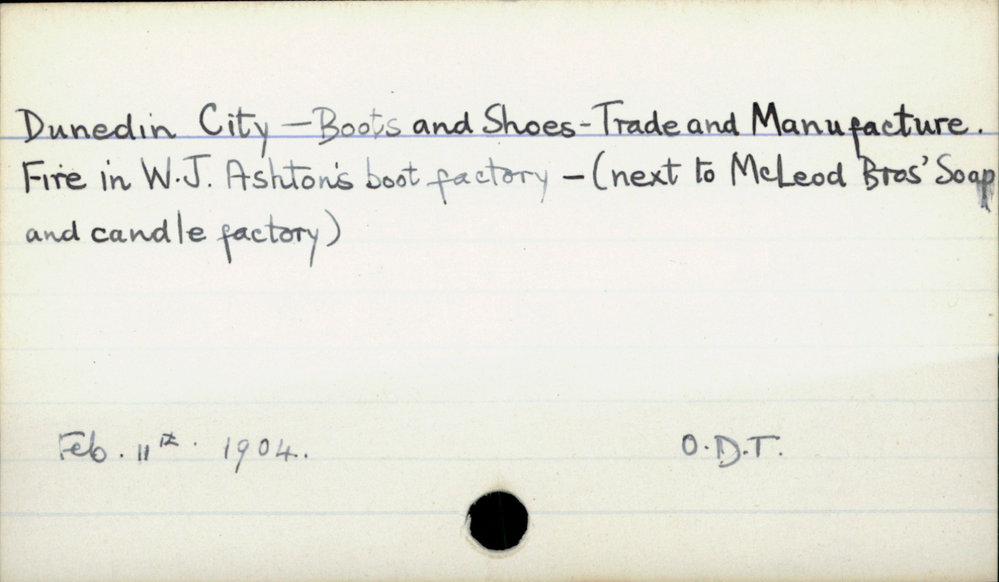 Dunedin City - Boots and Shoes - Trade and Manufacture.
Fire in W.J. Ashton's boot factory - (next to McLeod Bros' Soap
and candle factory)
Feb. 11th. 1904. O.D.T.